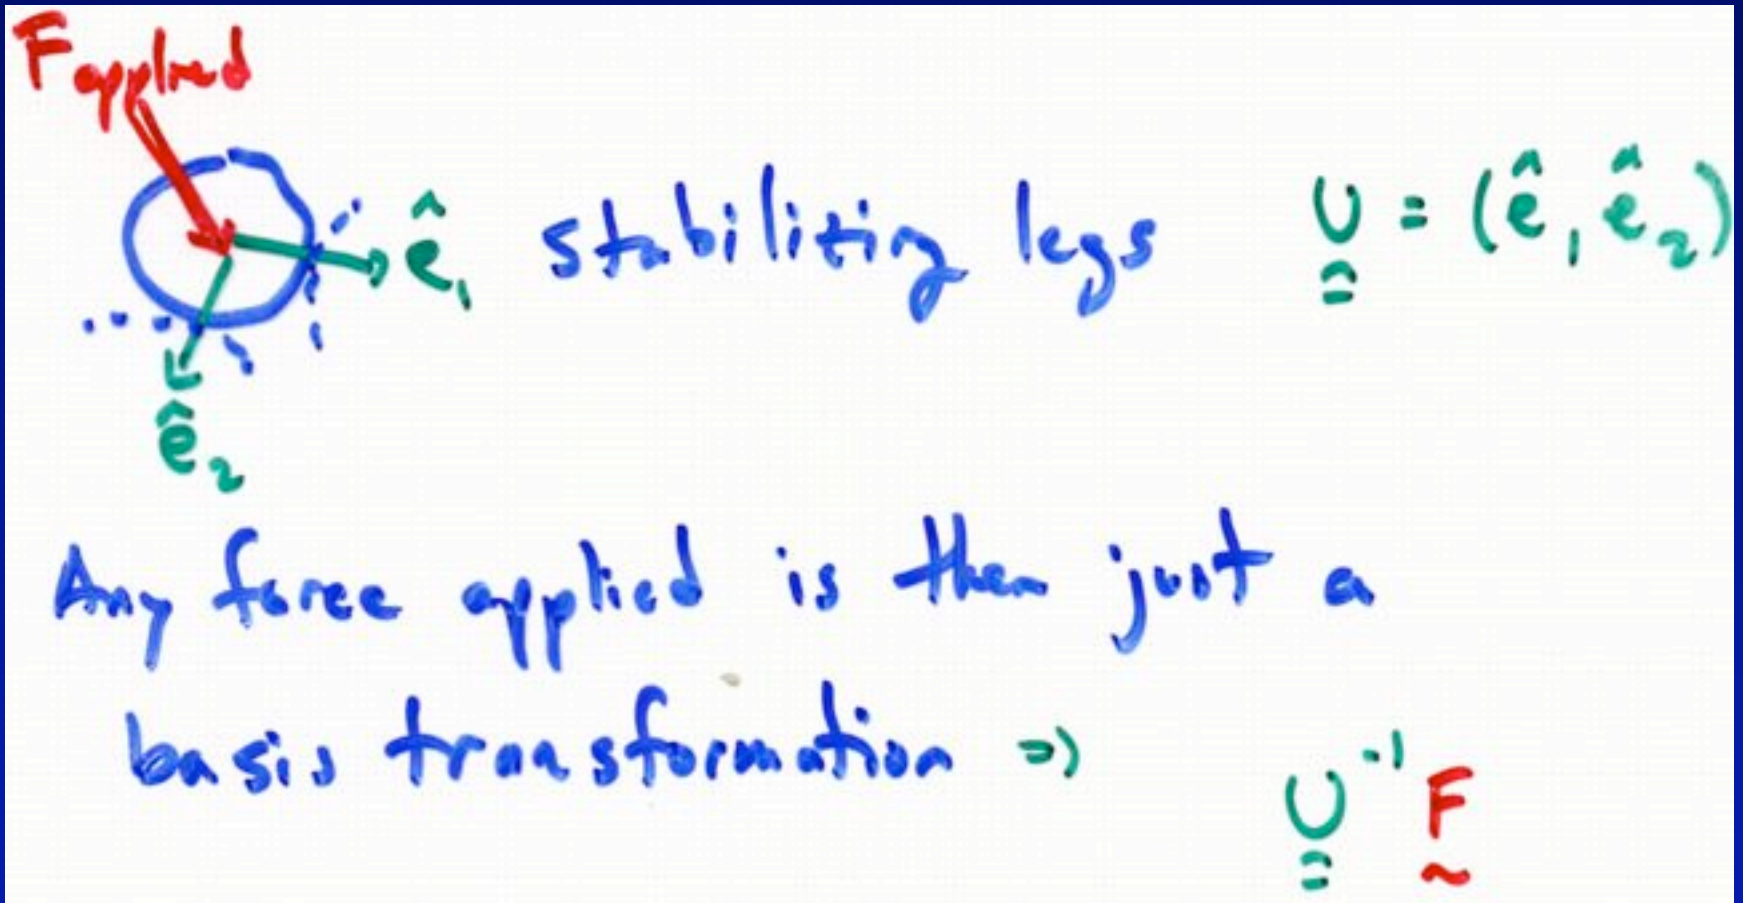 F applied
ê₁ stabilizing legs U = (ê₁ ê₂)
ê₂
Any force applied is then just a
basis transformation => U⁻¹ F